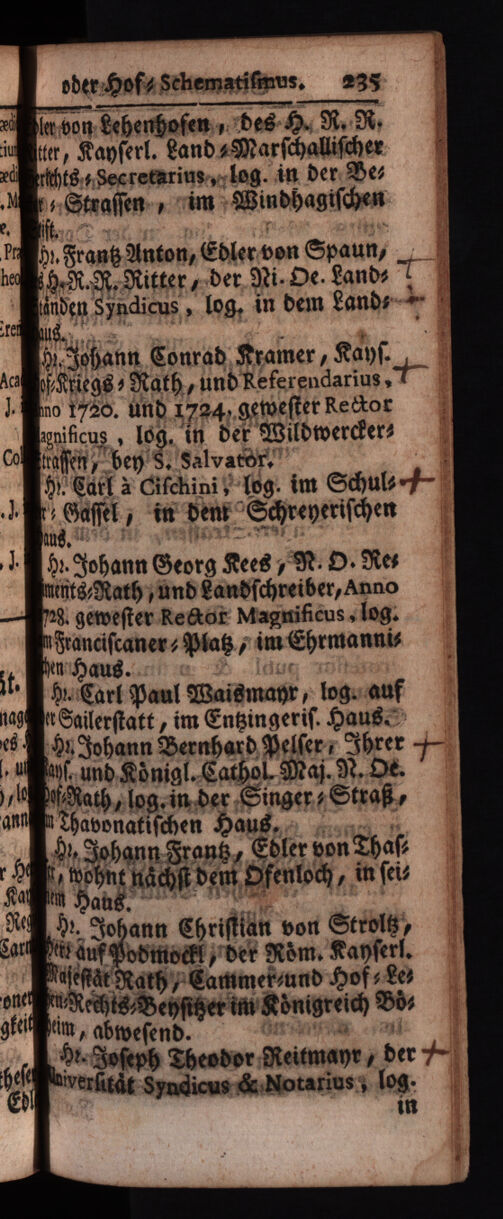 oder Hof⸗Schematismus. 235
von Lehenhofen, des H. R. R.
Kayserl. Land⸗Marschallischer
Secretarius, log. in der Be⸗
Strassen, im Windhagischen
Hr. Frantz Anton, Edler von Spaun,
H. R. R. Ritter, der Ni. Oe. Land⸗
Syndicus, log. in dem Land⸗
Hr. Johann Conrad Kramer, Kays.
Kriegs⸗Rath, und Referendarius,
1720. und 1724. gewester Rector
agnificus, log. in der Wildwercker⸗
bey S. Salvator.
Hr. Carl à Cischini, log. im Schul⸗
Gassel, in dem Schreyerischen
Hr. Johann Georg Kees, N. O. Re⸗
ments⸗Rath, und Landschreiber, Anno
728. gewester Rector Magnificus, log.
Franciscaner⸗Platz, im Ehrmanni⸗
Haus.
Hr. Carl Paul Waismayr, log. auf
er Sailerstatt, im Entzingeris. Haus.
Hr. Johann Bernhard Pelser, Ihrer
und Königl. Cathol. Maj. N. Oe.
Rath, log. in der Singer⸗Straß,
Thavonatischen Haus.
Hr. Johann Frantz, Edler von Thas⸗
wohnt nächst dem Ofenloch, in sei⸗
Haus.
Hr. Johann Christian von Stroltz,
auf Podmockl, der Röm. Kayserl.
Majestät Rath, Cammer⸗und Hof⸗Le⸗
Rechts⸗Beysitzer im Königreich Bö⸗
heim, abwesend.
Hr. Joseph Theodor Reitmayr, der
Universität Syndicus & Notarius, log.
in